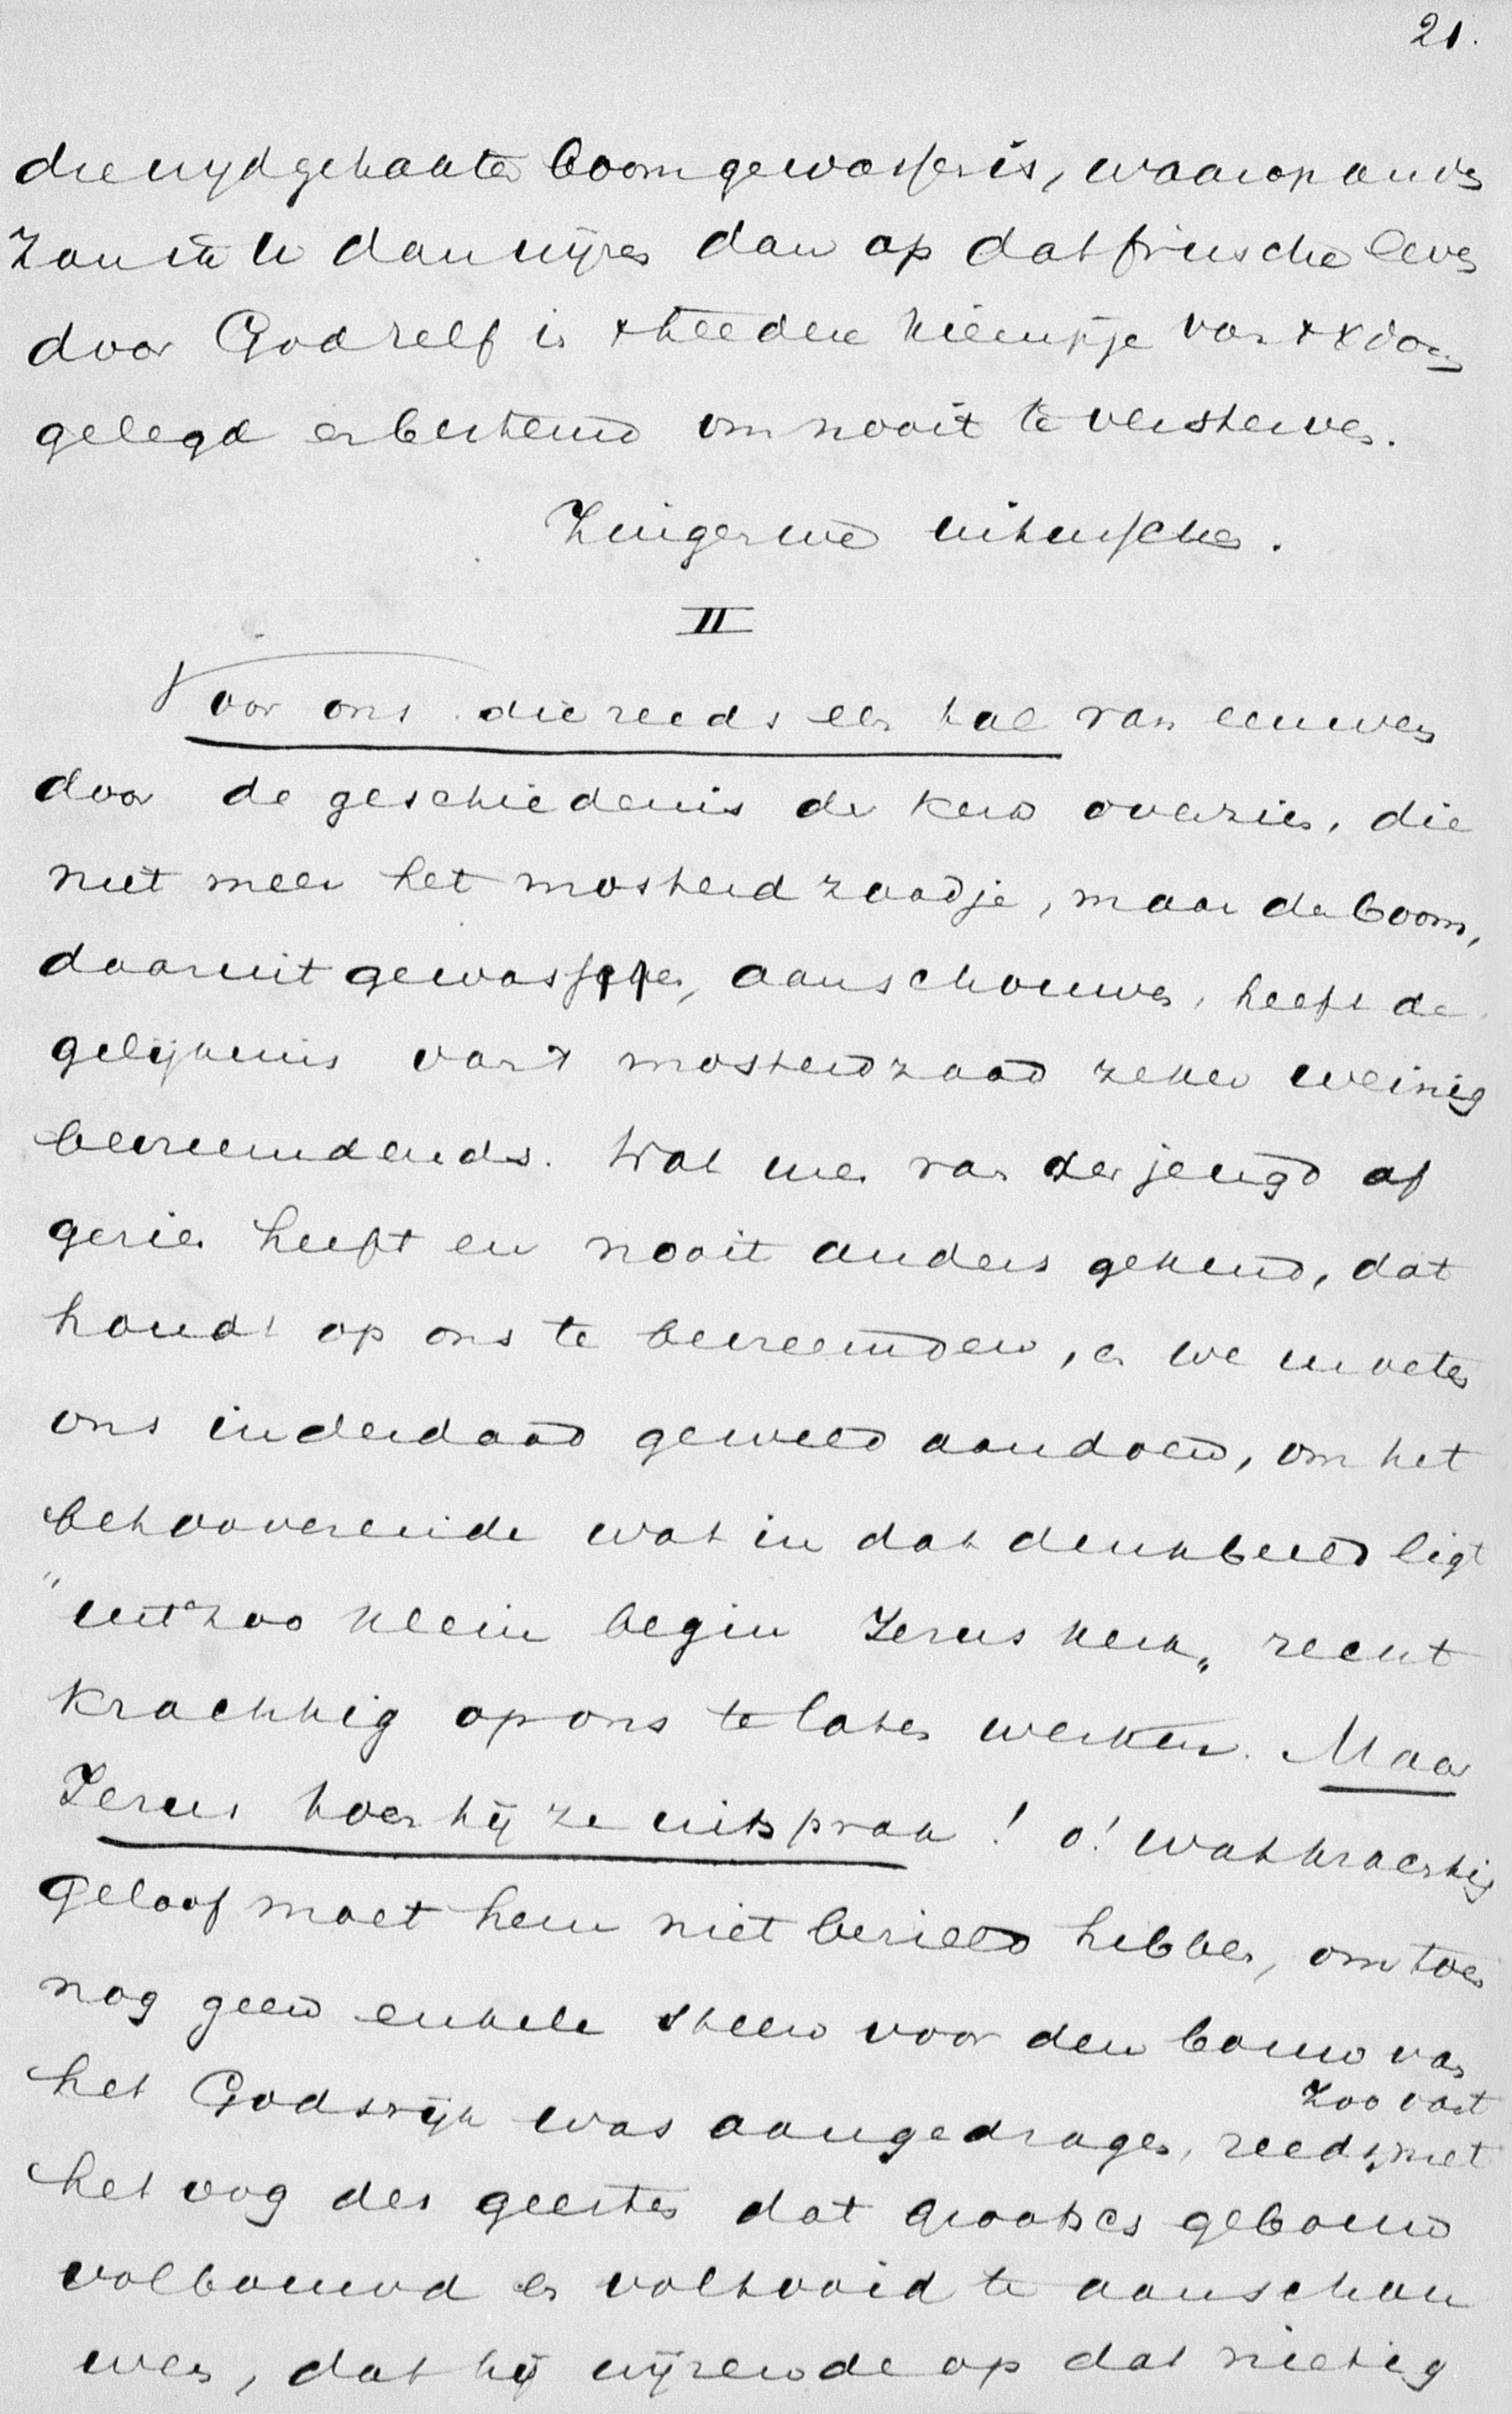 21.
die wijdgetakte boomgewassen is, waarop anders
zou ik u dan wijzen dan op dat frissche leven
door God zelf in 't teedere kiempje van 't xx door
gelegd en bestemd om nooit te versterven.
Zingen we intusschen.
II
Voor ons die reeds een tal van eeuwen
door de geschiedenis der kerk overzien, die
niet meer het mosterdzaadje, maar de boom,
daaruit gewassen, aanschouwen, heeft de
gelijkenis van 't mosterdzaad zeker weinig
bevreemdends. Wat men van der jeugd af
gezien heeft en nooit anders gekend, dat
houdt op ons te bevreemden, en we moeten
ons inderdaad geweld aandoen, om het
betooverende wat in dat denkbeeld ligt
"uit zoo klein begin Jezus kerk" recht
krachtig op ons te laten werken. Maar
Jezus toen hij ze uitsprak! o! wat krachtig
geloof moet hem niet bezield hebben, om toen
nog geen enkele steen voor den bouw van
het Godsrijk was aangedragen, reeds zoo vast met
het oog des geestes dat grootsch gebouw
volbouwd en voltooid te aanschou
wen, dat hij wijzende op dat nietig